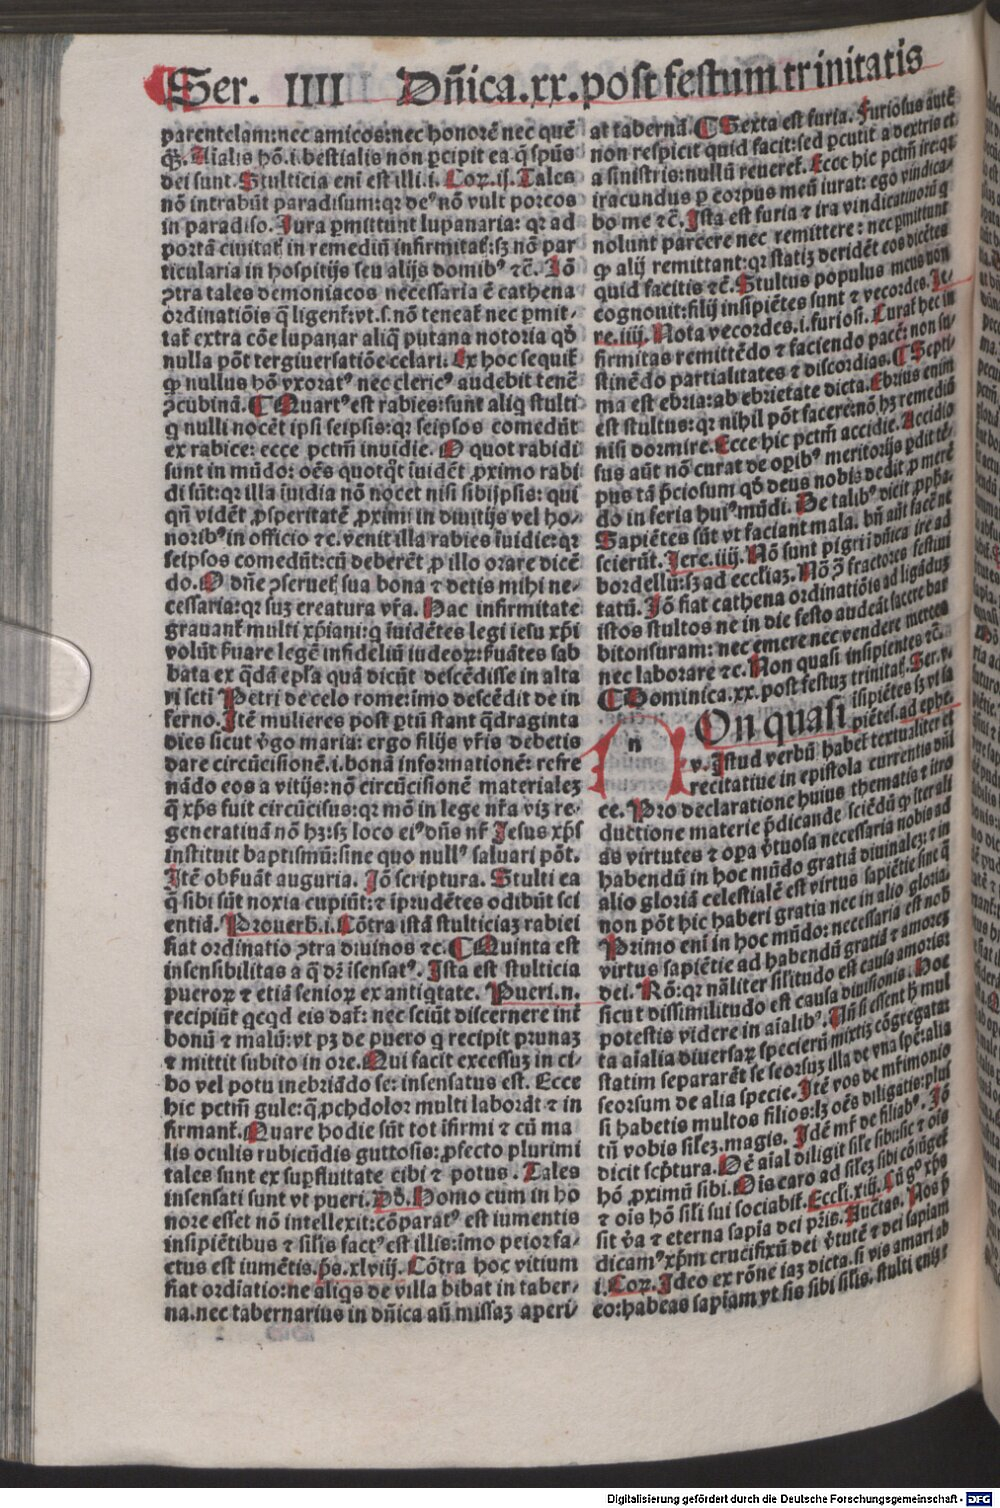 Ser. IIII Dñica.xx.post festum trinitatis
parentelam:nec amicos:nec honorē nec quē
q̄з. Aīalis hō.i.bestialis non ꝑcipit ea q̄ spūs
dei sunt. Stulticia enī est illi.i. Coꝝ.ij. Tales
nō intrabūt paradisum:qꝛ deꝰ nō vult porcos
in paradiso. Jura ꝑmittunt lupanaria: qꝛ ad
portā ciuitatꝭ in remediū infirmitatꝭ:sꝫ nō par
ticularia in hospitijs seu alijs domibꝰ ⁊c̄. Jō
ꝯtra tales demoniacos necessaria ē cathena
ordinatiōis q̄ ligentꝭ:vt.s.nō teneatꝭ nec ꝑmit-
tatꝭ extra cōe lupanar aliq̄ putana notoria qd̄
nulla pōt tergiuersatiōe celari. Ex hoc sequitꝭ
ꝙ nullus hō vxoratꝰ nec clericꝰ audebit tenē
ꝯcubinā. ¶ Quartꝰ est rabies:sunt aliq̄ stulti
q nulli nocēt ipsi seipsis:qꝛ seipsos comedūt
ex rabice: ecce pctm̄ inuidie. O quot rabidi
sunt in mūdo: oēs quotq̄t īuidēt ꝓximo rabi
di sūt:qꝛ illa īuidia nō nocet nisi sibijpsis: qui
qn̄ vidēt ꝓsperitatē ꝓximi in diuitijs vel ho-
noribꝰ in officio ⁊c. venit illa rabies īuidie:qꝛ
seipsos comedūt:cū deberēt ꝓ illo orare dicē
do. O dn̄e ꝯseruetꝭ sua bona ⁊ detis mihi ne-
cessaria:qꝛ suꝫ creatura vr̄a. Hac infirmitate
grauantꝭ multi xp̄iani:q īuidētes legi iesu xp̄i
volūt ẜuare legē infideliū iudeoꝝ:ẜuātes sab
bata ex q̄dā ep̄la quā dicūt descēdisse in alta
ri scti Petri de celo rome:imo descēdit de in
ferno. Itē mulieres post ꝑtū stant q̄draginta
dies sicut v̓go maria: ergo filijs vr̄is debetis
dare circūcisionē.i.bonā informationē: refre
nādo eos a vitijs:nō circūcisionē materialeꝫ
q̄ xp̄s fuit circūcisus:qꝛ mō in lege nr̄a viꝫ re-
generatiuā nō hꝫ:sꝫ loco eiꝰ dn̄s nr̄ Jesus xp̄s
instituit baptismū:sine quo nullꝰ saluari pōt.
Itē obẜuāt auguria. Jō scriptura. Stulti ea
q̄ sibi sūt noxia cupiūt: ⁊ īprudētes odibūt sci
entiā. Prouerb.i. Cōtra istā stulticiaꝫ rabiei
fiat ordinatio ꝯtra diuinos ⁊c. ¶ Quinta est
insensibilitas a q̄ dꝛ īsensatꝰ. Ista est stulticia
pueroꝝ ⁊ etiā senioꝝ ex antiq̄tate. Pueri.n.
recipiūt q̄cqd eis datꝭ: nec sciūt discernere inť
bonū ⁊ malū:vt pꝫ de puero q recipit prunaꝫ
⁊ mittit subito in ore. Qui facit excessuꝫ in ci-
bo vel potu inebriādo se: insensatus est. Ecce
hic pctm̄ gule: q̄ ꝓchdoloꝛ multi laborāt ⁊ in
firmantꝭ. Quare hodie sūt tot īfirmi ⁊ cū ma
lis oculis rubicūdis guttosis: ꝓfecto plurimi
tales sunt ex suꝑfluitate cibi ⁊ potus. Tales
insensati sunt vt pueri. Dō. Homo cum in ho
nore esset nō intellexit:cōparatꝰ est iumentis
insipiētibus ⁊ silis factꝰ est illis:imo peior fa-
ctus est iumētis. p̄s.xlviij. Cōtra hoc vitium
fiat ordīatio:ne aliq̄s de villa bibat in taber-
na.nec tabernarius in dn̄ica an̄ missaꝫ aperi-
at tabernā. ¶ Sexta est furia. Furiosus autē
non respicit quid facit:sed ꝑcutit a dextris et
a sinistris:nullū reueretꝭ. Ecce hic pctm̄ ire:qꝛ
iracundus ꝑ corpus meū iurat: ego vindica-
bo me ⁊c̄. Ista est furia ⁊ ira vindicatiuoꝝ q
nolunt parcere nec remittere: nec ꝑmittunt
ꝙ alij remittant:qꝛ statiꝫ deridēt eos dicētes
quid facitis ⁊c̄. Stultus populus meus non
cognouit:filij insipiētes sunt ⁊ vecordes. Je-
re.iiij. Nota vecordes.i.furiosi. Curatꝭ hec in
firmitas remittēdo ⁊ faciendo pacē: non su-
stinēdo partialitates ⁊ discordias. ¶ Septi-
ma est ebria:ab ebrietate dicta. Ebrius enim
est stultus:qꝛ nihil pōt facere:nō hꝫ remediū
nisi dormire. Ecce hic pctm̄ accidie. Accidio
sus aūt nō curat de oꝑibꝰ meritorijs ꝑdit tē-
pus tā p̄ciosum qd̄ deus nobis dedit ꝓ merē
do in feria huiꝰ mūdi. De talibꝰ dicit ꝓpha.
Sapiētes sūt vt faciant mala. bn̄ aūt facē ne
scierūt. Jere.iiij. Nō sunt pigri ī dn̄ica ire ad
bordellū:sꝫ ad eccliaꝫ. Nō ꝯ̄ fractores festiui
tatū. Jō fiat cathena ordinatiōis ad ligāduꝫ
istos stultos ne in die festo audeāt facere bar
bitonsuram: nec emere nec vendere merces
nec laborare ⁊c. Non quasi insipientes ⁊c̄.
¶ Dominica.xx. post festuꝫ trinitatꝭ. Ser.v.
n
On quasi īsipiētes sꝫ vt sa
piētes. ad ephe.
v. Istud verbū habetꝭ textualiter et
recitatiue in epistola currentis dn̄i
ce. Pro declaratione huius thematis ⁊ ītro
ductione materie p̄dicande sciēdū ꝙ īter ali
as virtutes ⁊ oꝑa v̓tuosa necessaria nobis ad
habendū in hoc mūdo gratiā diuinaleꝫ: ⁊ in
alio gloriā celestialē est virtus sapiētie sine q̄
non pōt hic haberi gratia nec in alio gloria.
Primo enī in hoc mūdo: necessaria est nob̄
virtus sapiētie ad habendū gratiā ⁊ amoreꝫ
dei. Rō: qꝛ nāliter silitudo est causa amoris:
sicut dissimilitudo est causa diuisionis. Hoc
potestis videre in aīalibꝰ. Nā si essent h̓ mul
ta aīalia diuersaꝝ specierū mixtiꝫ cōgregatas
statim separarēt se seorsuꝫ illa de vna spē: alia
seorsum de alia specie. Itē vos de mr̄imonio
si habetis multos filios:lꝫ oēs diligatis: plus
tn̄ vobis sileꝫ.magis. Idē mr̄ de filiabꝰ. Jō
dicit scptura. Oē aīal diligit sile sibi:sic ⁊ oīs
hō ꝓximū sibi. Oīs caro ad sileꝫ sibi cōiūgetꝭ
⁊ oīs hō sili sui sociabitꝭ. Eccli.xiij. Cū gꝰ xp̄s
sit v̓a ⁊ eterna sapīa dei pr̄is. Auctas. Nos p̄
dicamꝰ xp̄m crucifixū dei v̓tutē ⁊ dei sapiam
i. Coꝝ. Ideo ex rōne iaꝫ dicta.si vis amari ab
eo:habeas sapīam vt sis sibi silis. stulti eni ꝫ ⁊